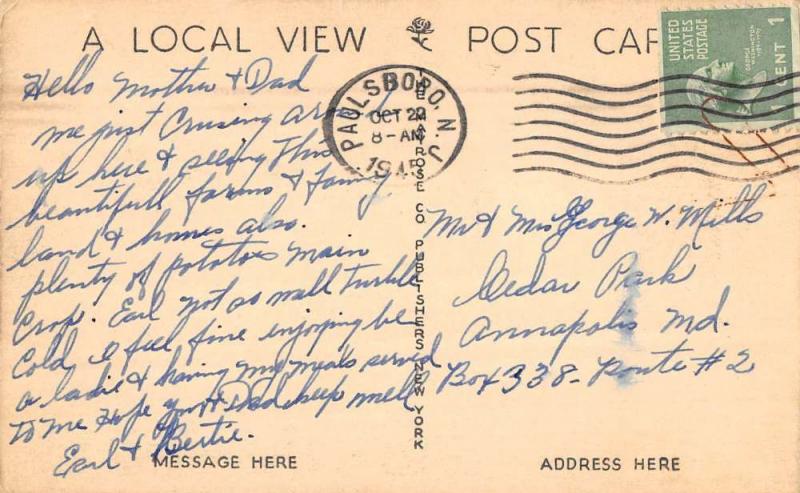 A LOCAL VIEW POST CAR
Hello Mother & Dad
me just Crusing
up here & seeing this
beautifull farms & farming
land & homes also.
plenty of potatoes main
Crop. Earl not so well turble
Cold I feel fine enjoying be
a ladie & having my meals served
to me Hope you & Dad keep well
Earl & Bertie.
MESSAGE HERE
PAULSBORO, N.J.
OCT
8-AM
THE MAYROSE CO. PUBLISHERS NEW YORK
UNITED STATES POSTAGE
GEORGE WASHINGTON
1789-1797
1 CENT 1
Mr & Mrs George W. Mills
Cedar Park
Annapolis Md.
Box 338- Route #2
ADDRESS HERE